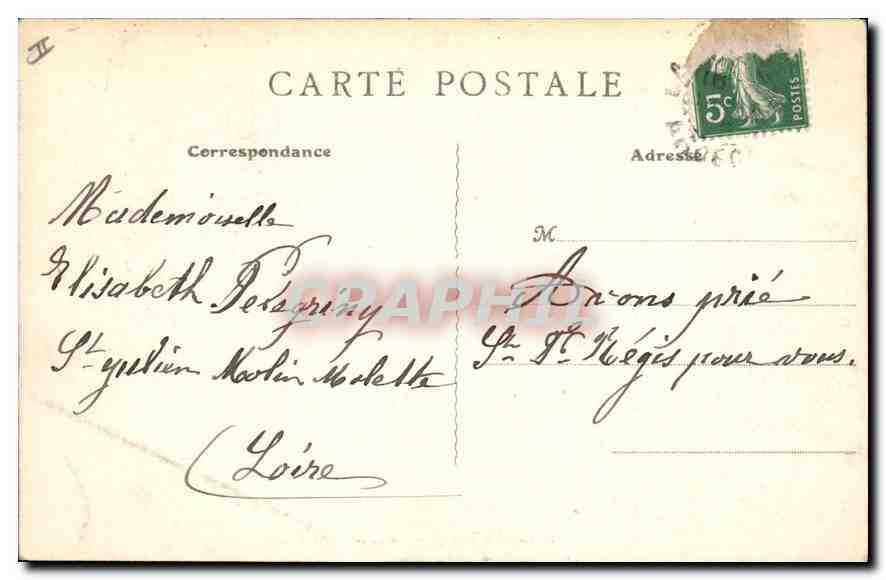 II
CARTE POSTALE
5c
POSTES
Correspondance
Adresse
Mademoiselle
Elisabeth Pérégriny
St Julien Molin Molette
(Loire
M
Avons prié
St Régis pour vous.
CRAPHIL